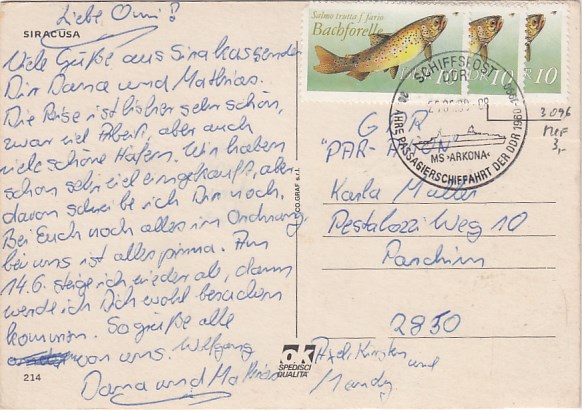 Liebe Omi!
SIRACUSA
Viele Grüße aus Sirakus senden
Dir Dana und Mathias.
Die Reise ist bisher sehr schön,
zwar viel Arbeit, aber auch
viele schöne Häfen. Wir haben
schon sehr viel eingekauft, aber
davon schreibe ich Dir noch.
Bei Euch noch alles in Ordnung
bei uns ist alles prima. Am
14.6. steige ich wieder ab, dann
werde ich Dich wohl besuchen
kommen. So grüße alle
von uns. Wolfgang
Dana und Mathias
214
CO.GRAF s.r.l.
ok
SPEDISCI
QUALITA'
Salmo trutta f. fario
Bachforelle
DDR 10
10
10
SCHIFFSPOST
DDR
JAHRE PASSAGIERSCHIFFAHRT DER DDR 1960-1990
MS "ARKONA"
3096
MiF
3,-
Karla Müller
Pestalozzi Weg 10
Parchim
2850
Axel, Kirsten
und
Mandy